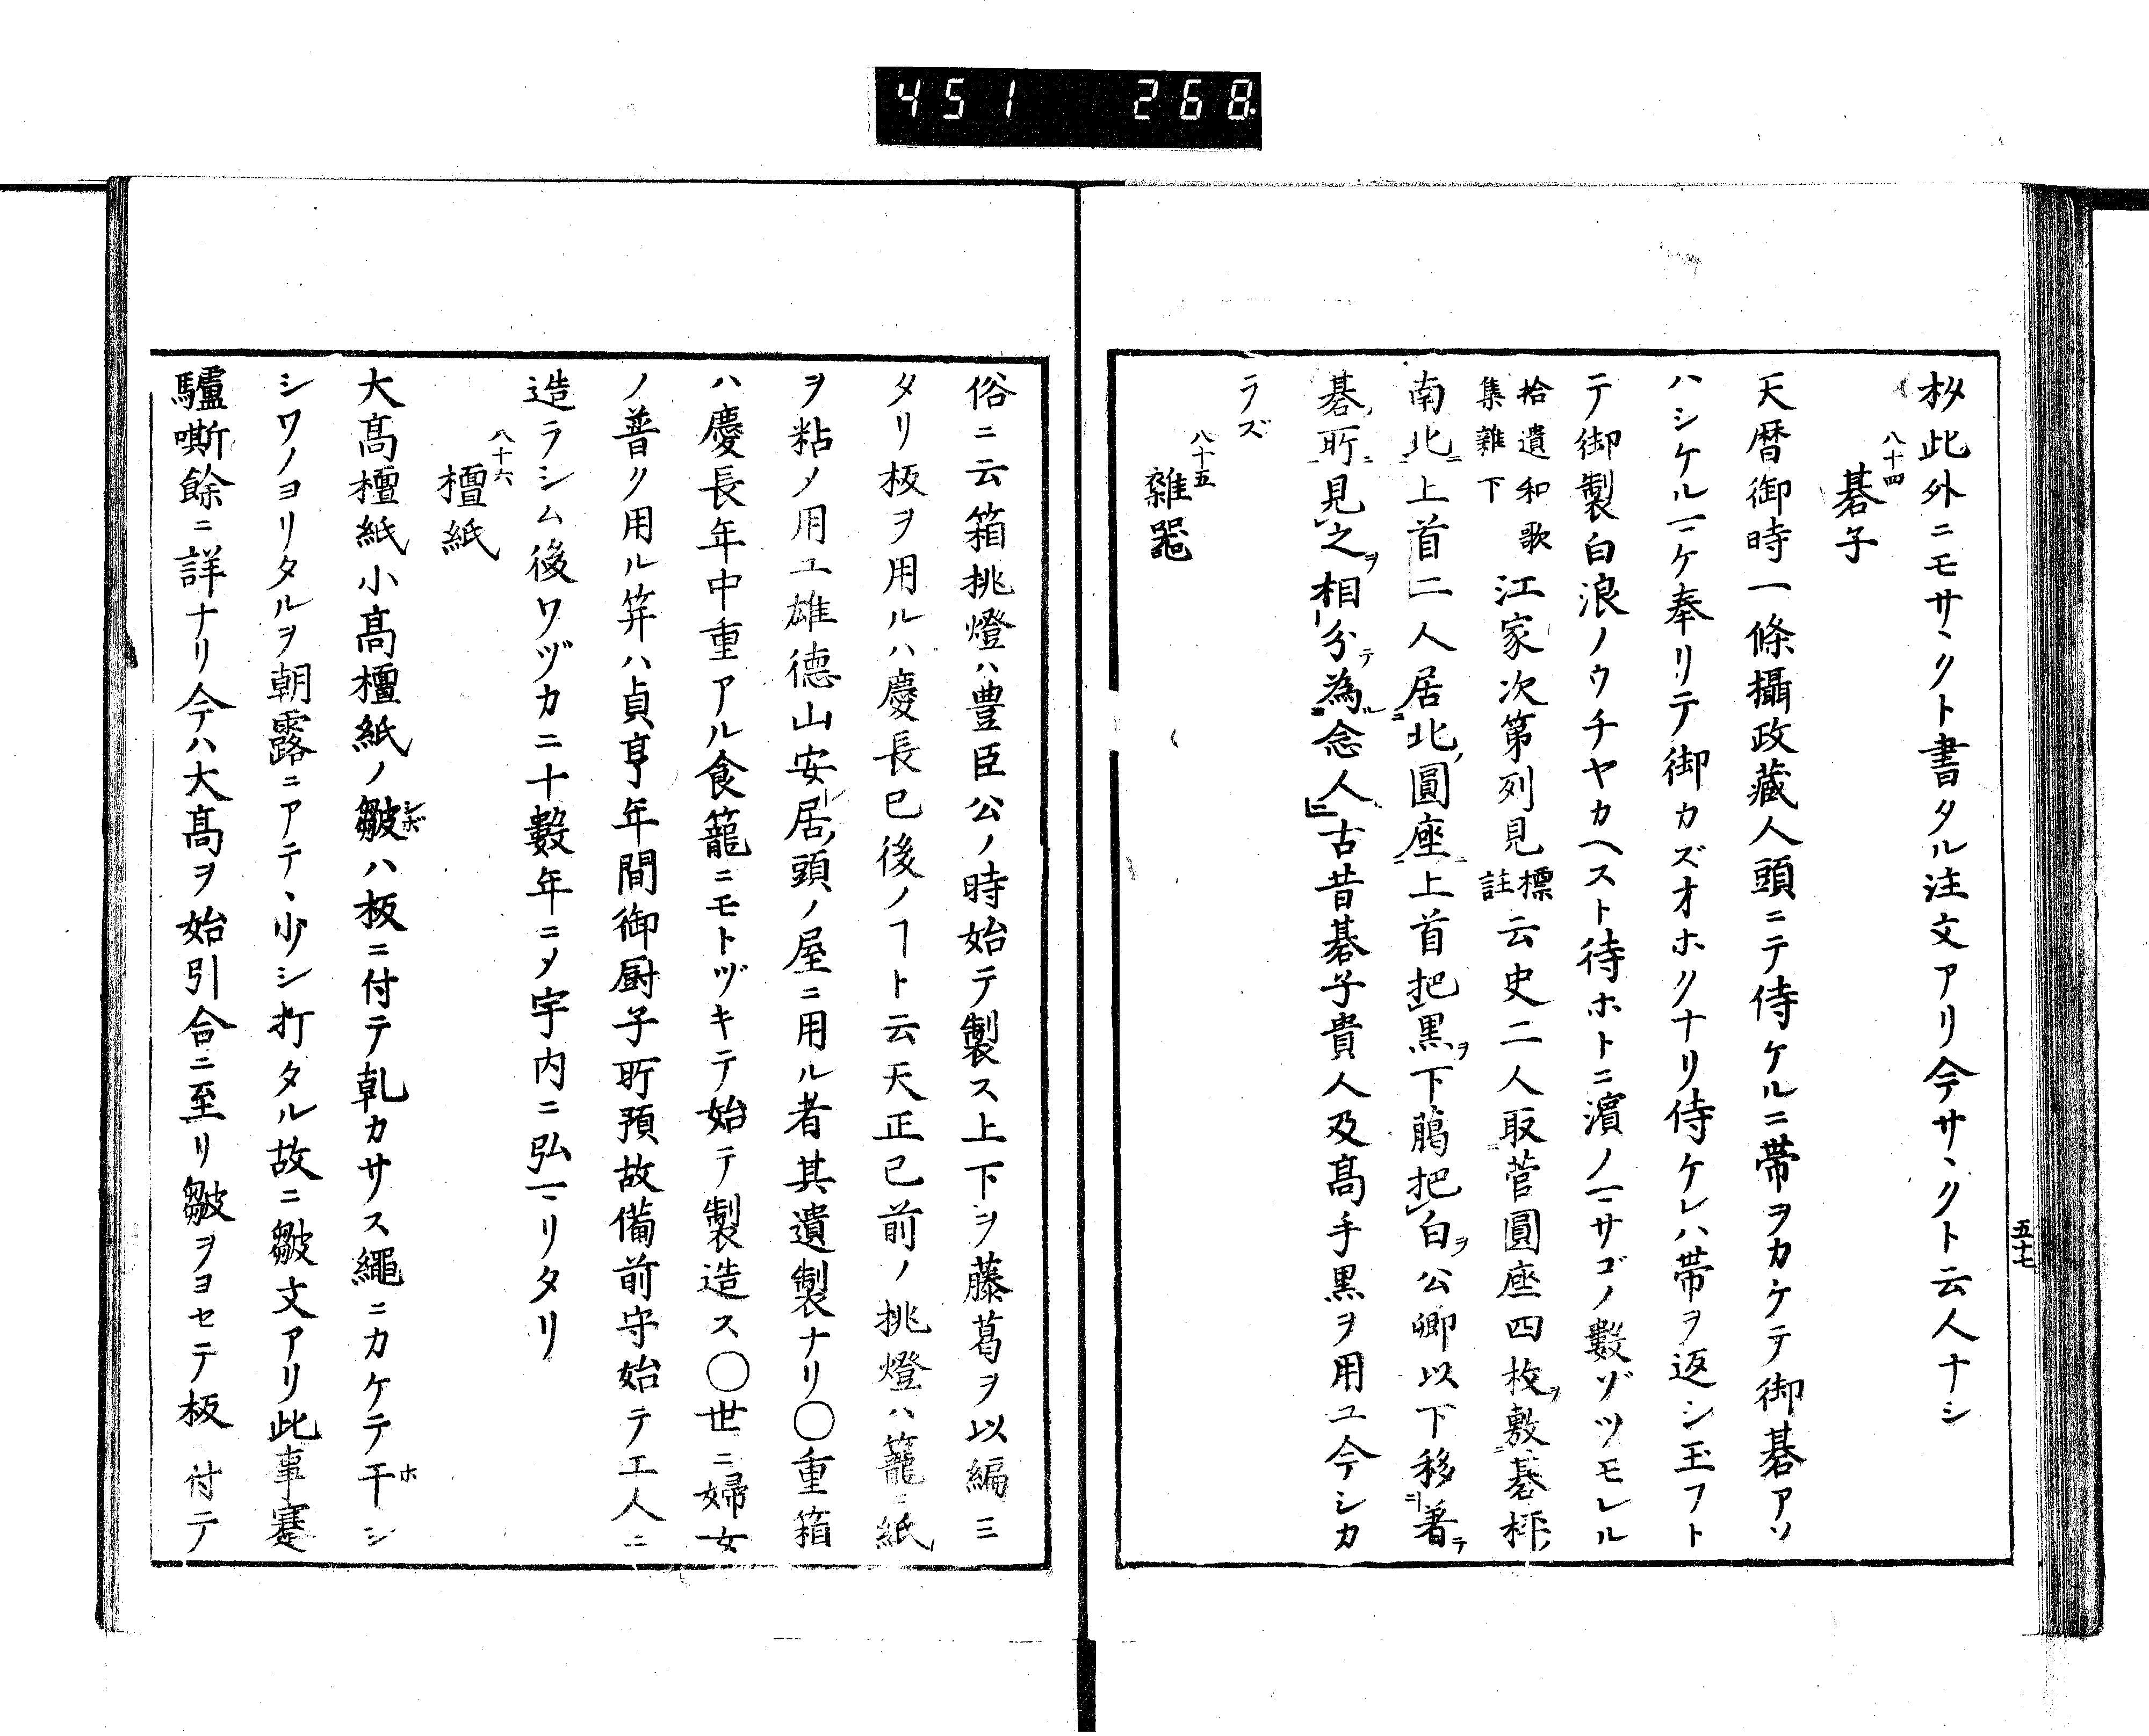 451 268
五十七
枀此外ニモサヽクト書タル注文アリ今サヽクト云人ナシ
八十四
碁子
天暦御時一條攝政藏人頭ニテ侍ケルニ帯ヲカケテ御碁アソ
ハシケルマケ奉リテ御カズオホクナリ侍ケレハ帯ヲ返シ玉フト
テ御製白浪ノウチヤカヘスト待ホトニ濱ノマサゴノ數ゾツモレル
拾遺和歌
集雜下
江家次第列見
標
註
云史二人取菅圓座四枚ヲ敷碁枰
南北ニ上首二人居北圓座ニ上首把黒ヲ下﨟把白ヲ公卿以下移著テ
碁所ニ見之ヲ相分テ為念人古昔碁子貴人及髙手黒ヲ用ユ今シカ
ラズ
八十五
雜器
俗ニ云箱挑燈ハ豊臣公ノ時始テ製ス上下ヲ藤葛ヲ以編ミ
タリ板ヲ用ルハ慶長已後ノヿト云天正已前ノ挑燈ハ籠ニ紙
ヲ粘メ用ユ雄德山安居頭ノ屋ニ用ル者其遺製ナリ〇重箱
ハ慶長年中重アル食籠ニモトヅキテ始テ製造ス〇世ニ婦女
ノ普ク用ル笄ハ貞亨年間御厨子所預故備前守始テ工人ニ
造ラシム後ワヅカニ十數年ニメ宇内ニ弘マリタリ
八十六
檀紙
大髙檀紙小髙檀紙ノ皺シボハ板ニ付テ乹カサス繩ニカケテ干ホシ
シワノヨリタルヲ朝露ニアテヽ少シ打タル故ニ皺文アリ此事蹇
驢嘶餘ニ詳ナリ今ハ大髙ヲ始引合ニ至リ皺ヲヨセテ板付テ